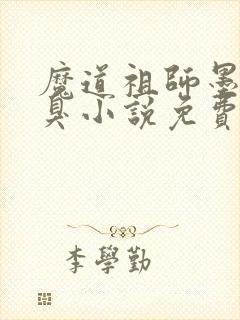 魔道祖師墨
臭小說免費
李學勤